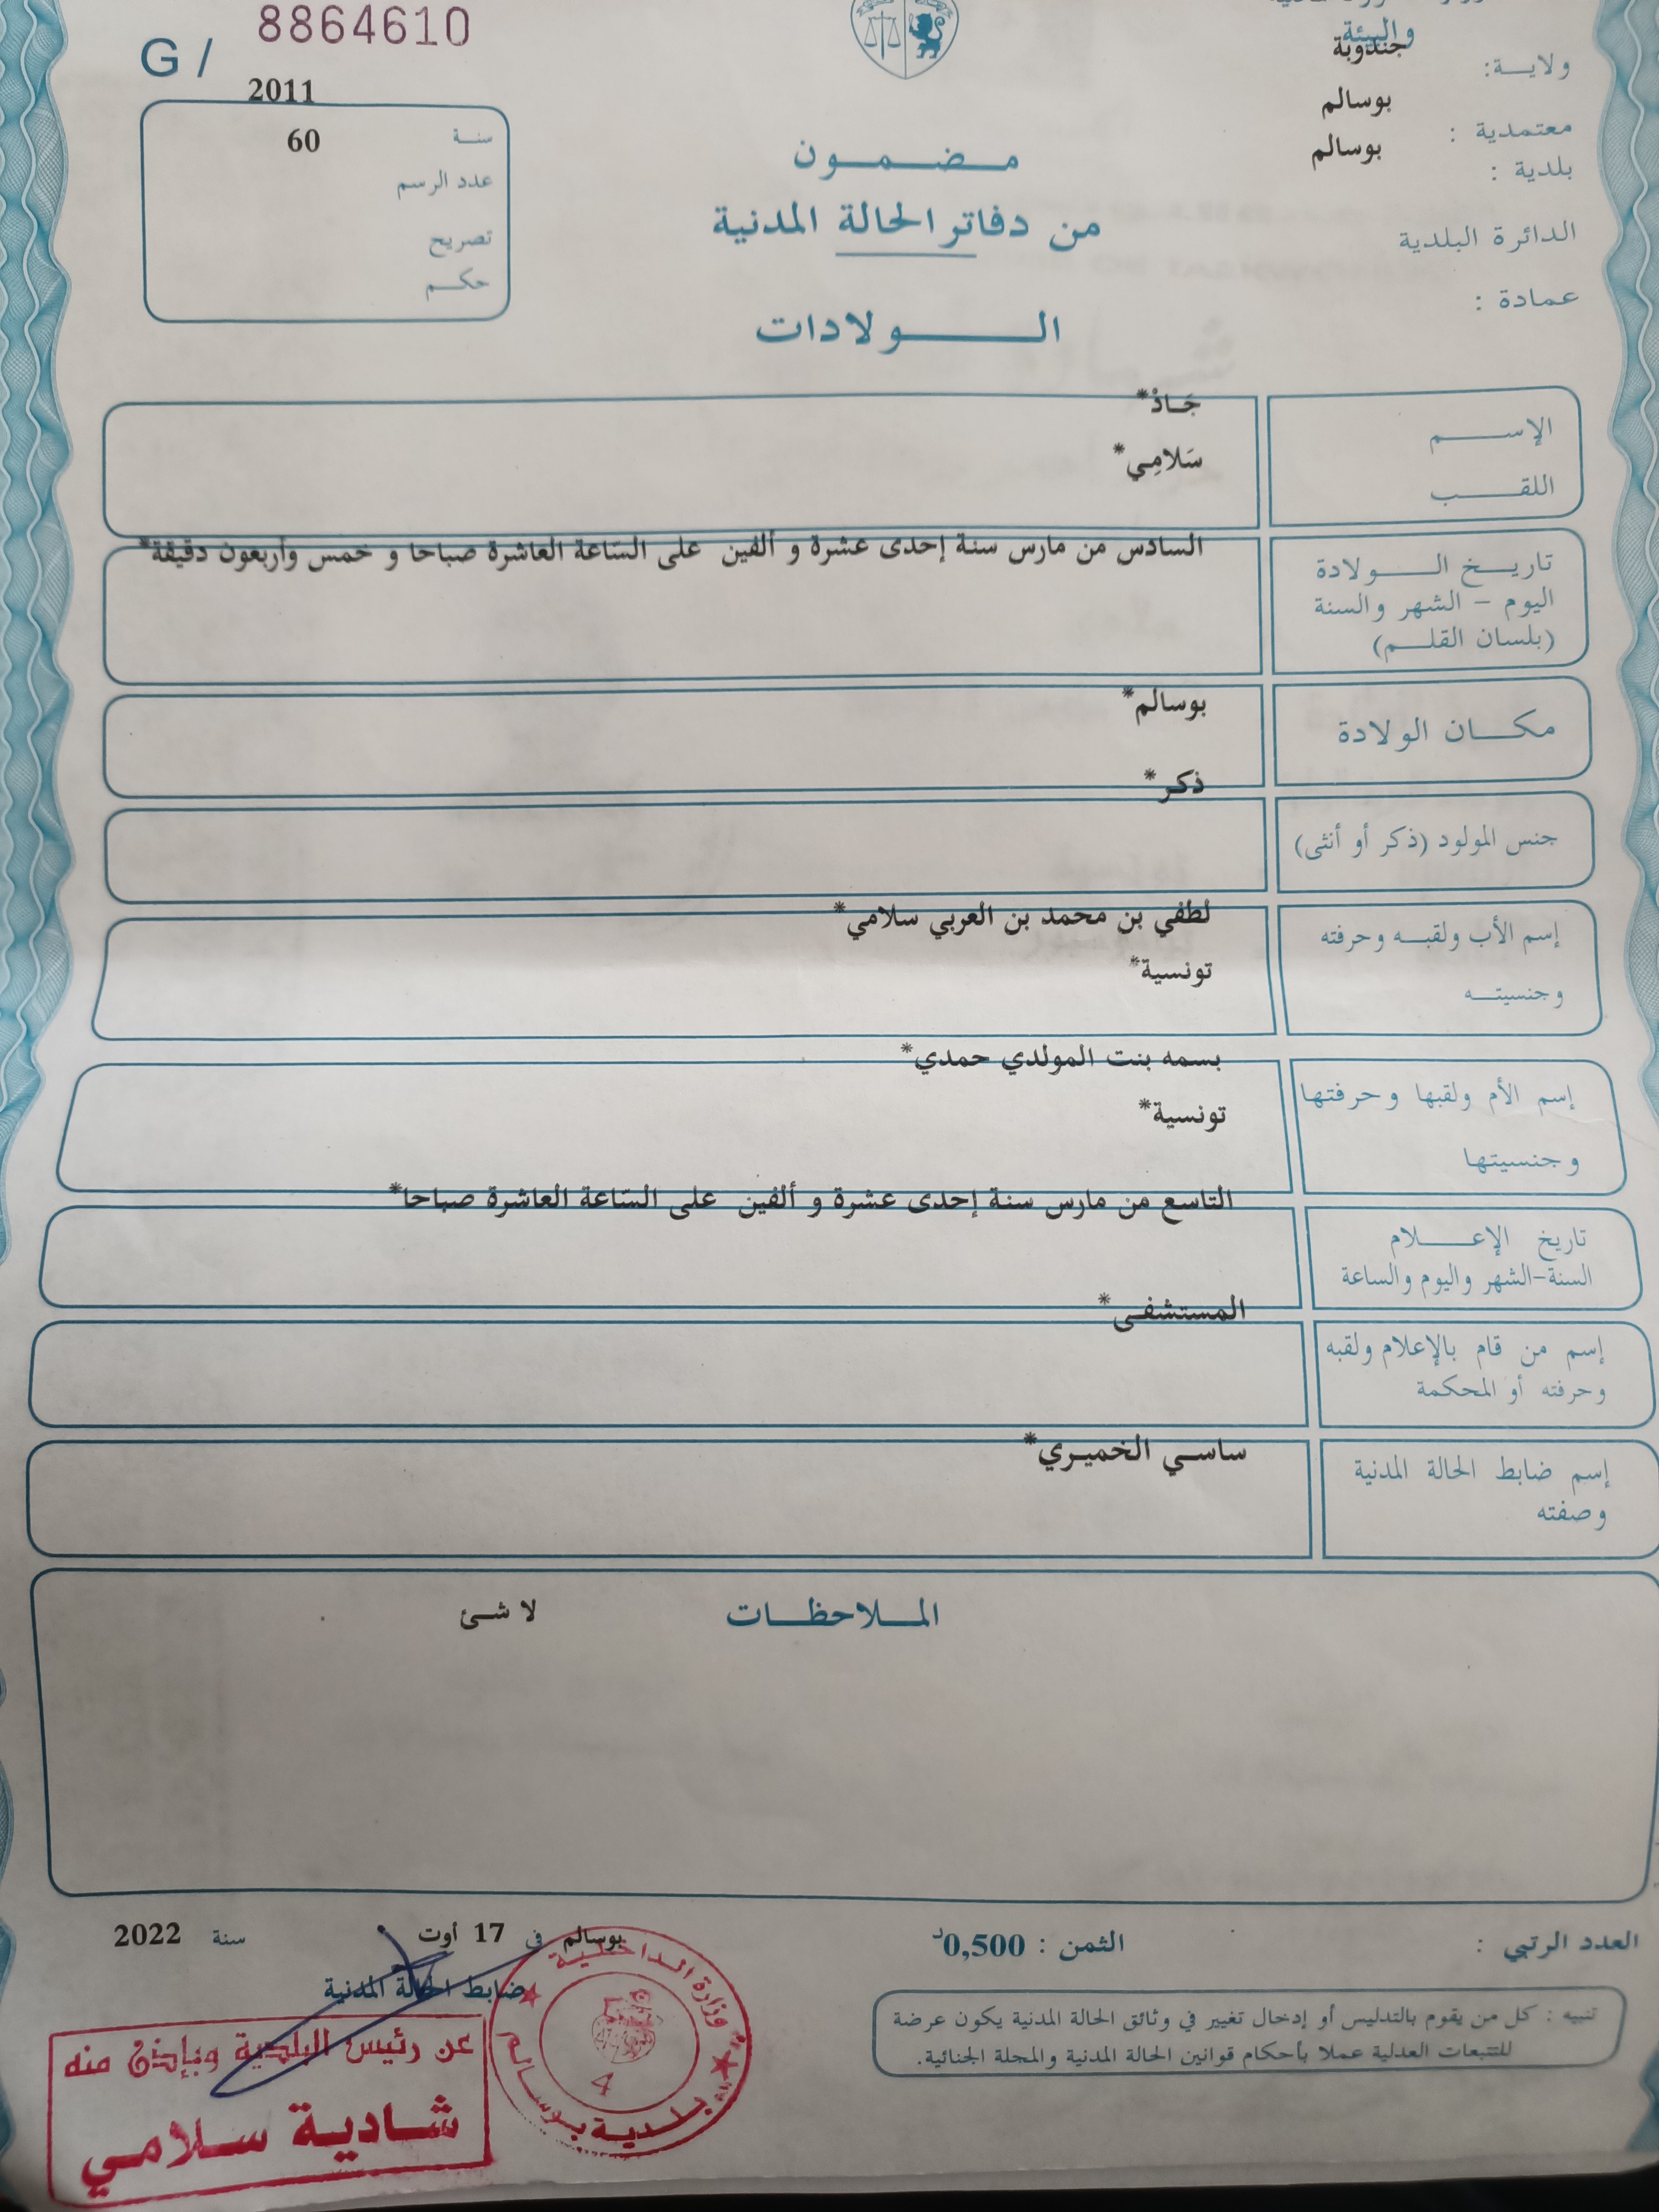 8864610
G /
والبيئة
ولايـــة: جندوبة
معتمدية : بوسالم
بلدية : بوسالم
الدائرة البلدية
عمادة :
2011
سنـة 60
عدد الرسم
تصريح
حكـم
مـضـمـون
من دفاتر الحالة المدنية
الـــولادات
الإســـم جَـادْ*
اللقـــب سَلامِي*
تاريــخ الـــولادة السادس من مارس سنة إحدى عشرة و ألفين على السّاعة العاشرة صباحا و خمس وأربعون دقيقة*
اليوم – الشهر والسنة
(بلسان القلـم)
مكــان الولادة بوسالم*
ذكر*
جنس المولود (ذكر أو أنثى)
إسم الأب ولقبـه وحرفته لطفي بن محمد بن العربي سلامي*
وجنسيتـه تونسية*
إسم الأم ولقبها وحرفتها بسمه بنت المولدي حمدي*
وجنسيتها تونسية*
التاسع من مارس سنة إحدى عشرة و ألفين على السّاعة العاشرة صباحا*
تاريخ الإعـــلام
السنة-الشهر واليوم والساعة
المستشفـى*
إسم من قام بالإعلام ولقبه
وحرفته أو المحكمة
ساسـي الخميـري*
إسم ضابط الحالة المدنية
وصفته
المـلاحظـات لا شـئ
العدد الرتبي :
الثمن : 0,500د
بوسالم في 17 أوت سنة 2022
ضابط الحالة المدنية
تنبيه : كل من يقوم بالتدليس أو إدخال تغيير في وثائق الحالة المدنية يكون عرضة
للتتبعات العدلية عملا بأحكام قوانين الحالة المدنية والمجلة الجنائية.
وزارة الـداخـلـيـة
بـلـديـة بـوسـالـم
4
عن رئيس البلدية وبإذن منه
شـاديـة سـلامـي